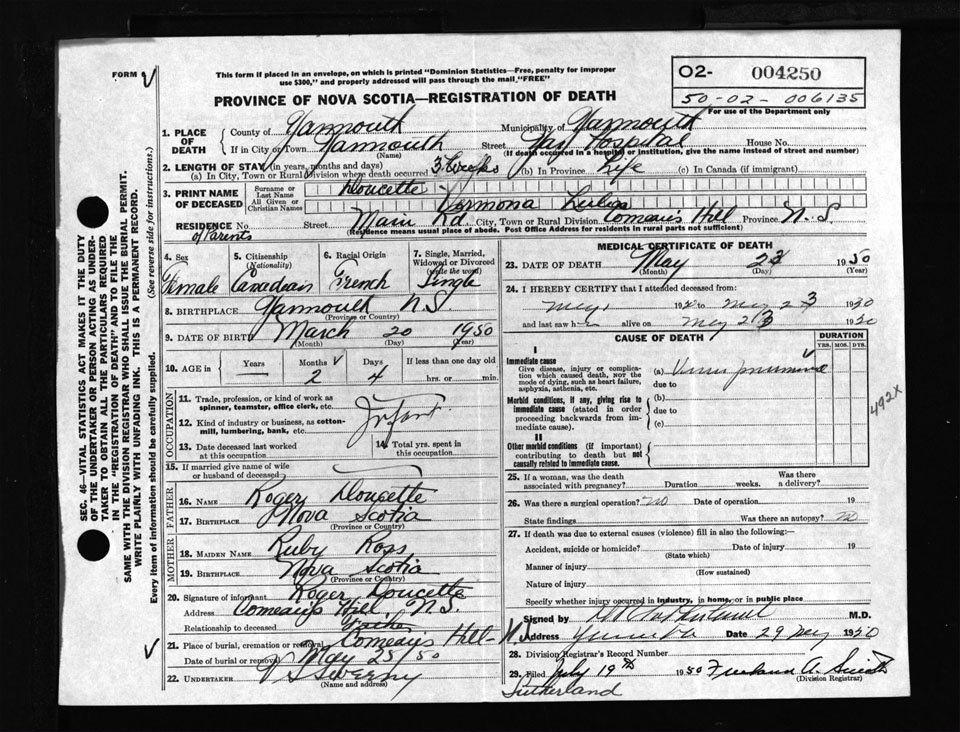 FORM V
This form if placed in an envelope, on which is printed "Dominion Statistics—Free, penalty for improper
use $300," and properly addressed will pass through the mail, "FREE"
O2- 004250
50-02- 006135
For use of the Department only
PROVINCE OF NOVA SCOTIA—REGISTRATION OF DEATH
SEC. 46—VITAL STATISTICS ACT MAKES IT THE DUTY
OF THE UNDERTAKER OR PERSON ACTING AS UNDER-
TAKER TO OBTAIN ALL THE PARTICULARS REQUIRED
IN THE "REGISTRATION OF DEATH" AND TO FILE THE
SAME WITH THE DIVISION REGISTRAR WHO SHALL ISSUE THE BURIAL PERMIT.
WRITE PLAINLY WITH UNFADING INK. THIS IS A PERMANENT RECORD.
Every item of information should be carefully supplied. (See reverse side for instructions.)
1. PLACE OF DEATH
County of Yarmouth Municipality of Yarmouth
If in City or Town Yarmouth Street Hospital House No.
(Name) (If death occurred in a hospital or institution, give the name instead of street and number)
2. LENGTH OF STAY (in years, months and days)
(a) In City, Town or Rural Division where death occurred 3 weeks (b) In Province Life (c) In Canada (if immigrant)
3. PRINT NAME OF DECEASED
Surname or Last Name Doucette
All Given or Christian Names
RESIDENCE No. Street Main Rd. City, Town or Rural Division Comeau's Hill Province N.S.
of Parents (Residence means usual place of abode. Post Office Address for residents in rural parts not sufficient)
4. Sex 5. Citizenship (Nationality) 6. Racial Origin 7. Single, Married, Widowed or Divorced (write the word)
Female Canadian French Single
8. BIRTHPLACE Yarmouth N.S.
(Province or Country)
9. DATE OF BIRTH March 20 1950
(Month) (Day) (Year)
10. AGE in Years Months Days If less than one day old
— 2 4 hrs. or min.
OCCUPATION
11. Trade, profession, or kind of work as
spinner, teamster, office clerk, etc.
Infant
12. Kind of industry or business, as cotton-
mill, lumbering, bank, etc.
13. Date deceased last worked
at this occupation
14. Total yrs. spent in
this occupation
15. If married give name of wife
or husband of deceased
FATHER
16. NAME Roger Doucette
17. BIRTHPLACE Nova Scotia
(Province or Country)
MOTHER
18. MAIDEN NAME Ruby Ross
19. BIRTHPLACE Nova Scotia
(Province or Country)
20. Signature of informant Roger Doucette
Address Comeau's Hill, N.S.
Relationship to deceased Father
21. Place of burial, cremation or removal Comeau's Hill - N.S.
Date of burial or removal May 25/50
22. UNDERTAKER V S Sweeny
(Name and address)
MEDICAL CERTIFICATE OF DEATH
23. DATE OF DEATH May 23 1950
(Month) (Day) (Year)
24. I HEREBY CERTIFY that I attended deceased from:
May 19 to May 23 1950
and last saw h alive on May 23 1950
CAUSE OF DEATH DURATION
YRS. MOS. DYS.
I
Immediate cause
Give disease, injury or complica-
tion which caused death, not the
mode of dying, such as heart failure,
asphyxia, asthenia, etc.
(a) Virus pneumonia
due to
Morbid conditions, if any, giving rise to
immediate cause (stated in order
proceeding backwards from im-
mediate cause).
(b)
due to
(c)
492X
II
Other morbid conditions (if important)
contributing to death but not
causally related to immediate cause.
25. If a woman, was the death
associated with pregnancy? Duration weeks. Was there a delivery?
26. Was there a surgical operation? no Date of operation 19
State findings Was there an autopsy? no
27. If death was due to external causes (violence) fill in also the following:—
Accident, suicide or homicide? Date of injury 19
(State which)
Manner of injury
(How sustained)
Nature of injury
Specify whether injury occurred in industry, in home, or in public place
Signed by M.D.
Address Date 29 May 1950
28. Division Registrar's Record Number
29. Filed July 19th 1950
(Division Registrar)
Sutherland